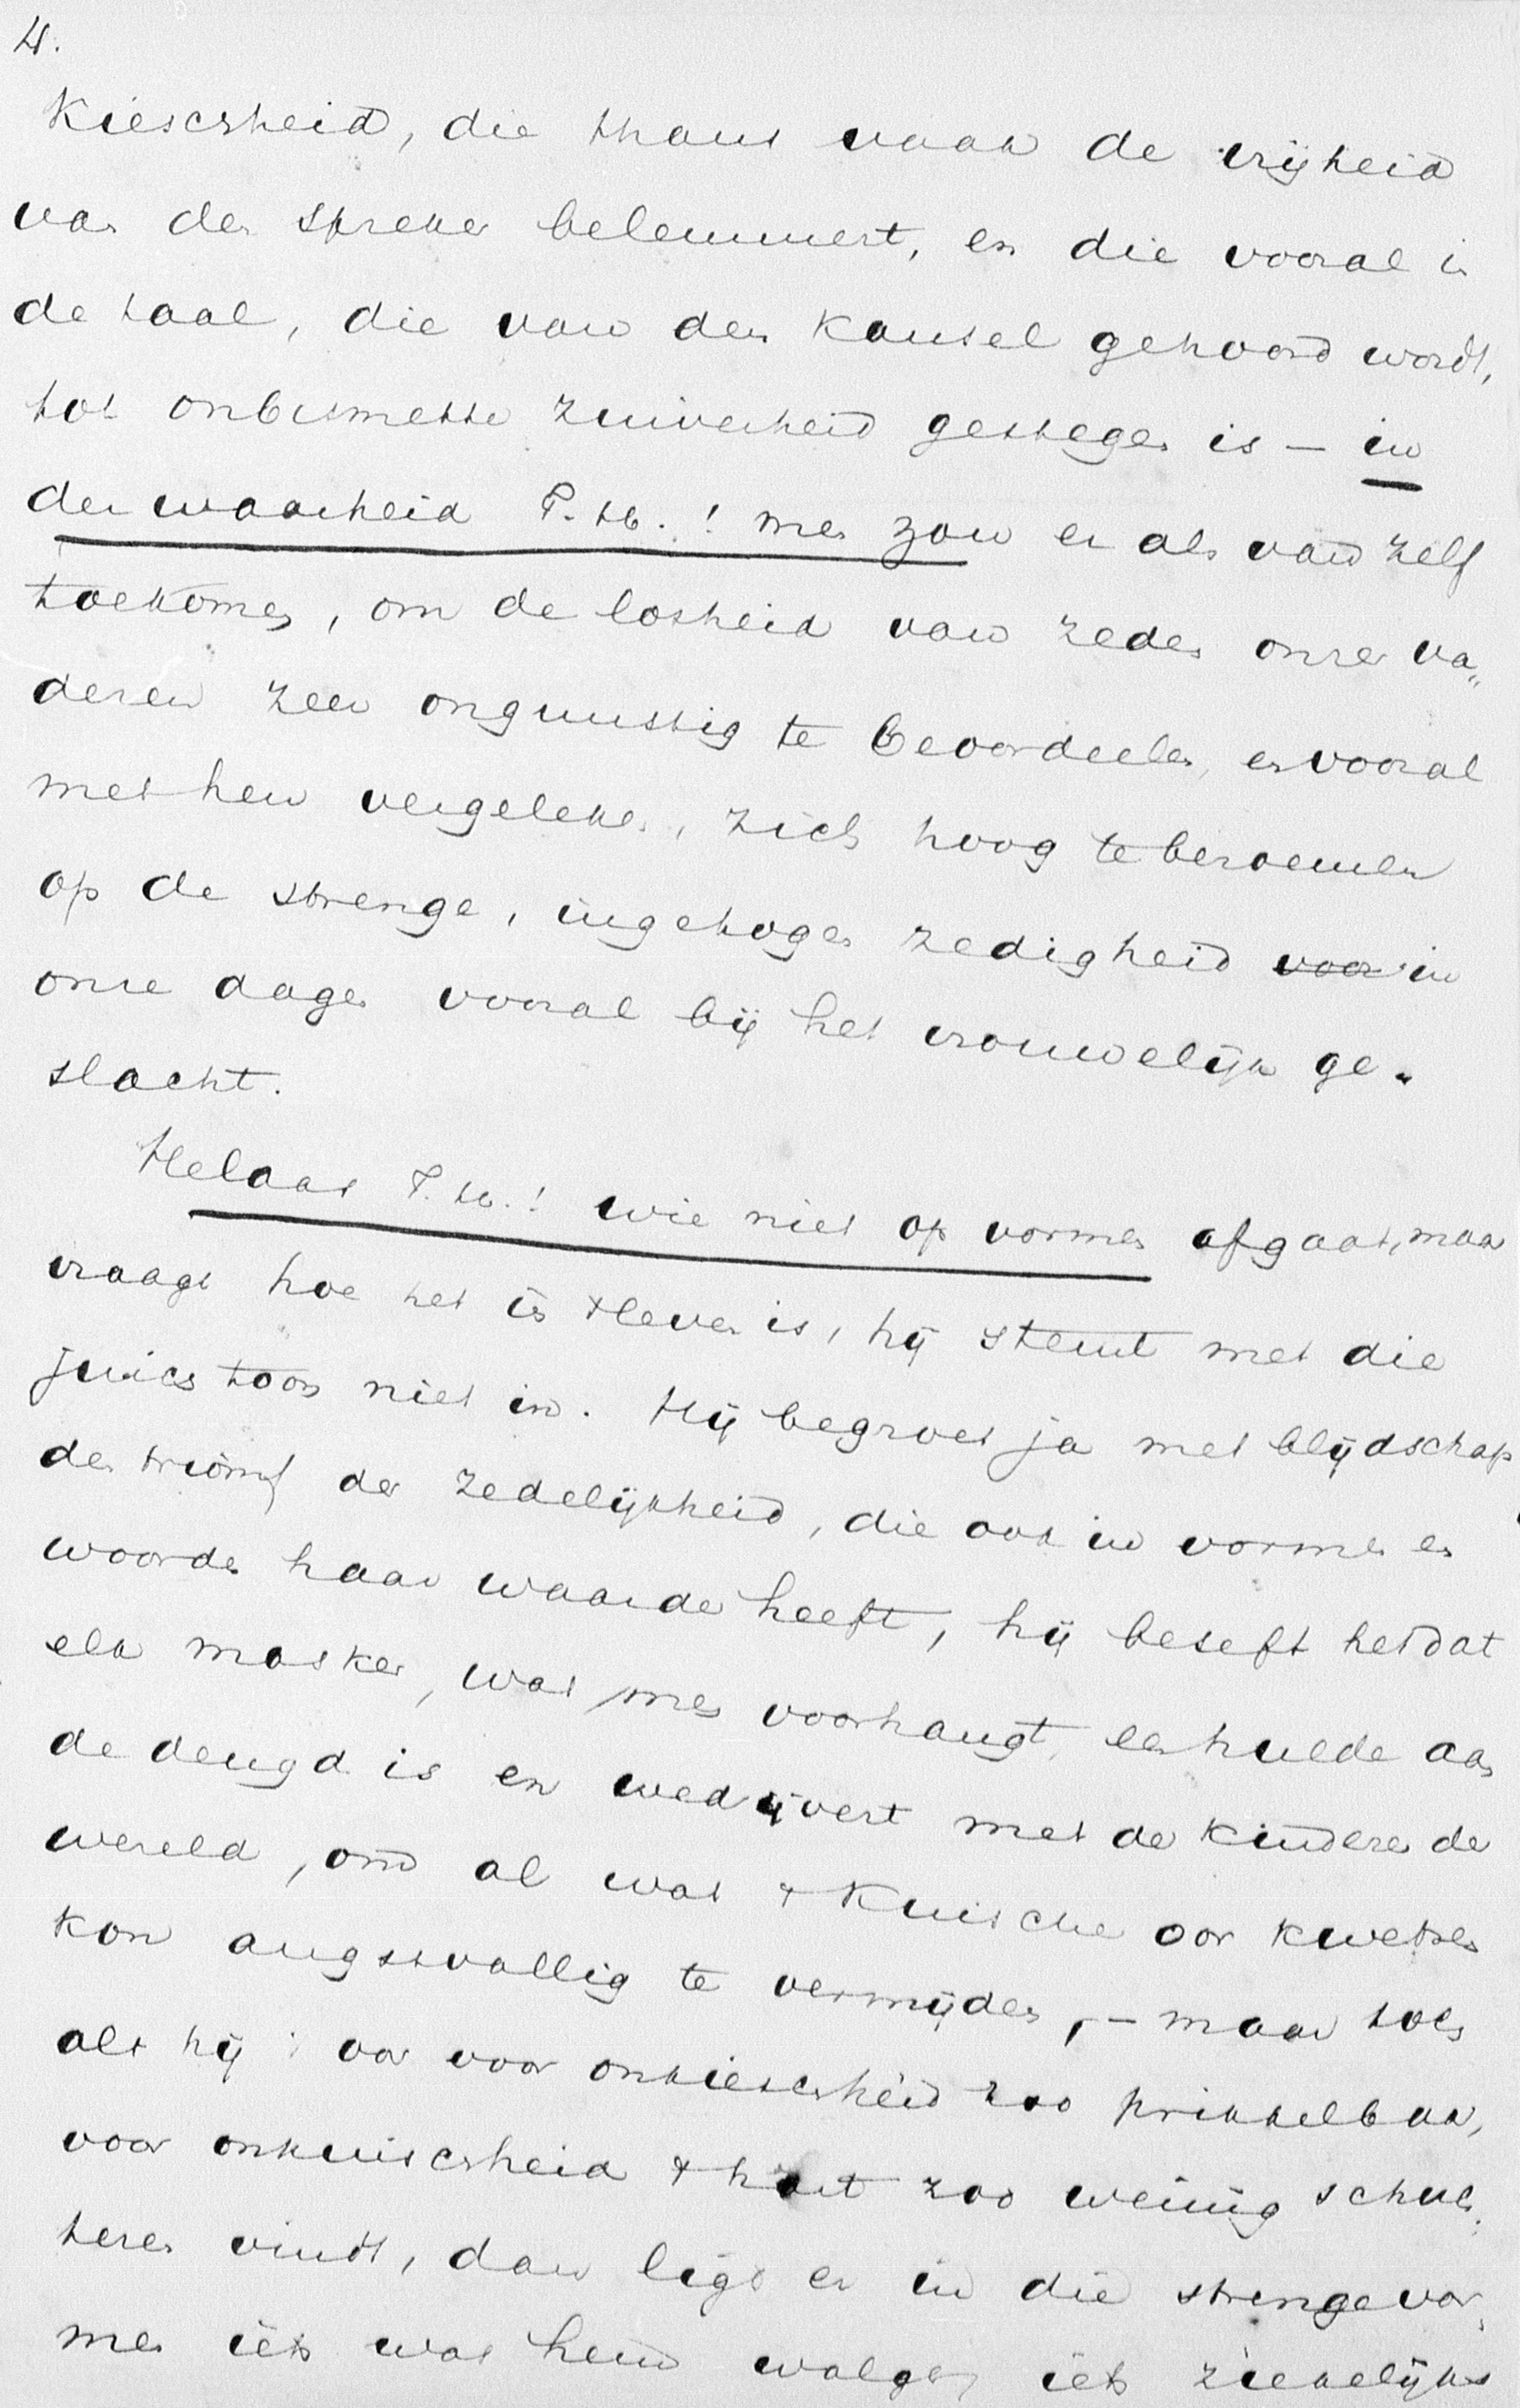 4.
Kieschheid, die thans vaak de vrijheid
van den spreker belemmert, en die vooral in
de taal, die van den Kansel gehoord wordt,
tot onbesmette zuiverheid gestegen is – in
der waarheid T. H.! men zou er als van zelf
toekomen, om de losheid van zeden onzer va„
deren zeer ongunstig te beoordeelen, en vooral
met hen vergeleken, zich hoog te beroemen
op de strenge, ingetogen zedigheid voor in
onze dagen vooral bij het vrouwelijk ge„
slacht.
Helaas T. H.! wie niet op vormen afgaat, maar
vraagt hoe het in 't leven is, hij stemt met die
juichtoon niet in. Hij begroet ja met blijdschap
den triomf der zedelijkheid, die ook in vormen en
woorden haar waarde heeft, hij beseft het dat
elk masker, wat men voorhangt, een hulde aan
de deugd is en wedijvert met de kinderen der
wereld, om al wat 't Kuische oor kwetsen
kon angstvallig te vermijden, – maar toch
als hij 't oor voor onkieschheid zoo prikkelbaar,
voor onkuischheid 't hart zoo weinig schul„
teren vindt, dan ligt er in die strenge vor„
men iets wat hem walgt, iets ziekelijks